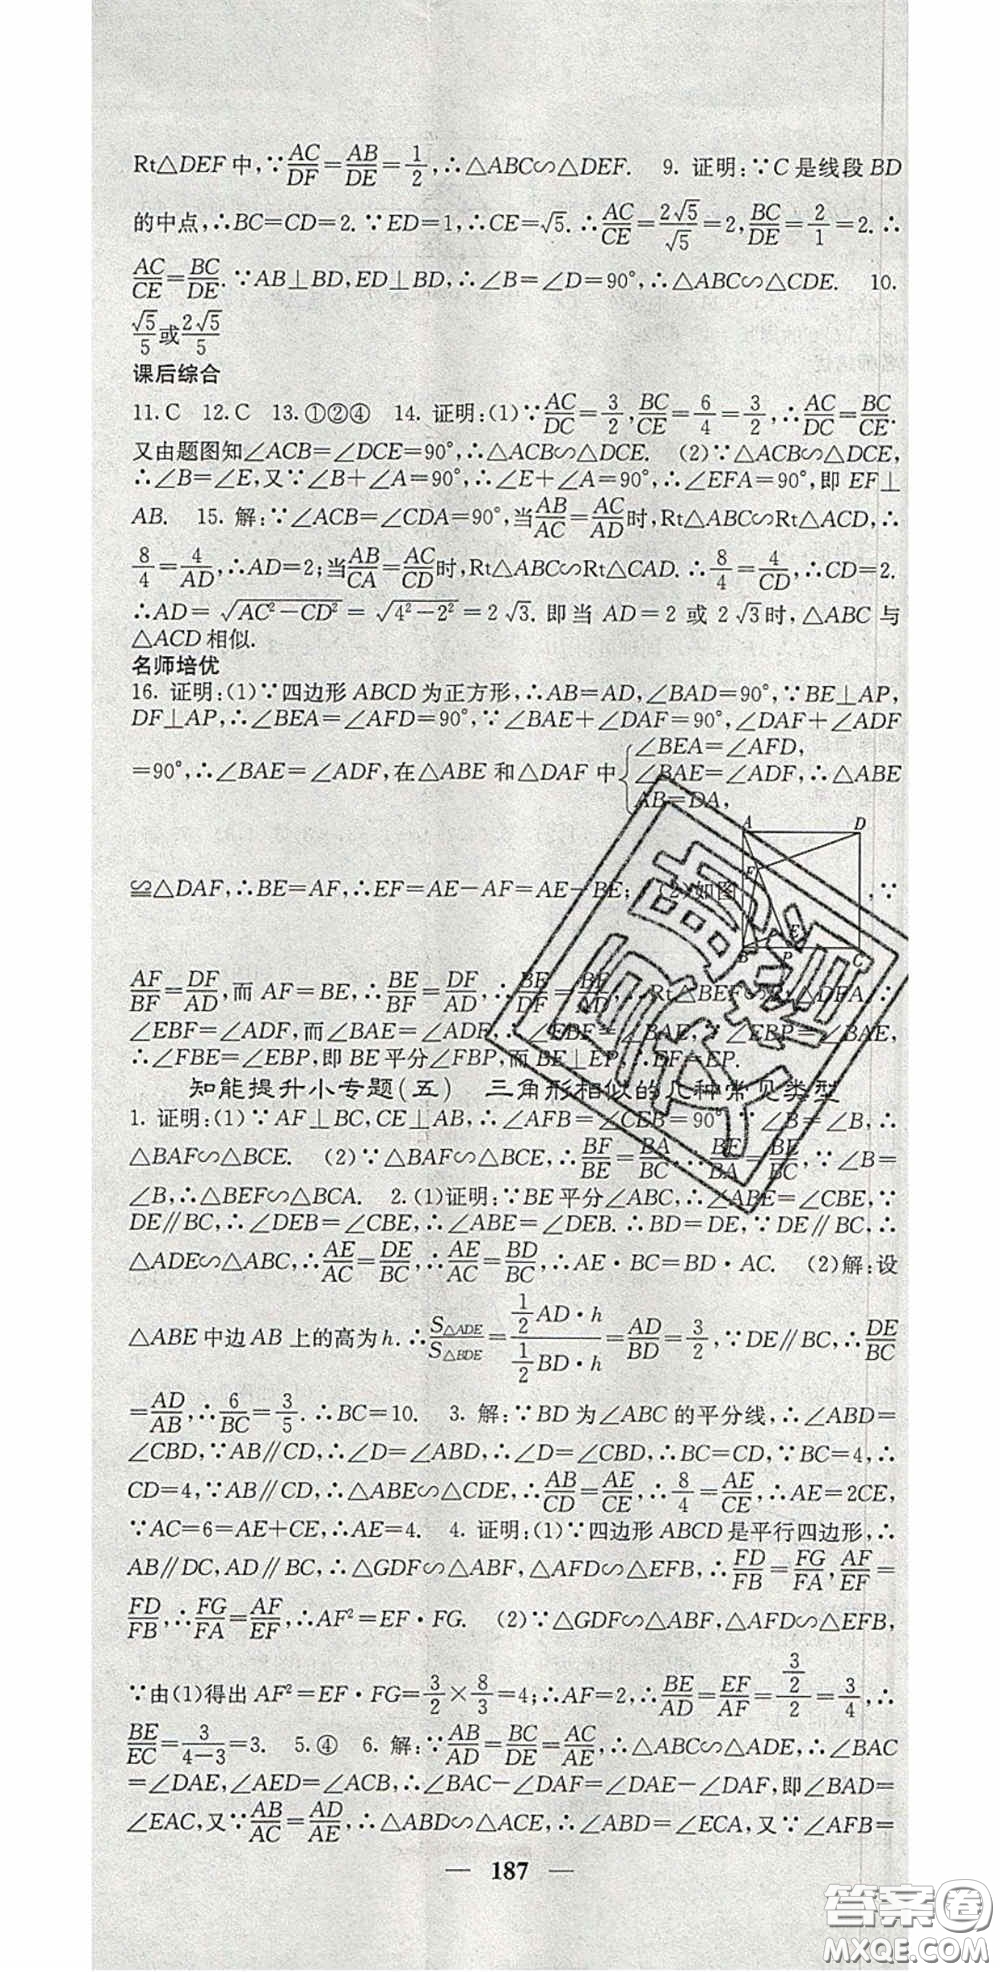 Rt△DEF中,∵AC/DF=AB/DE=1/2,∴△ABC∽△DEF. 9. 证明:∵C是线段BD
的中点,∴BC=CD=2.∵ED=1,∴CE=√5.∴AC/CE=2√5/√5=2,BC/DE=2/1=2.∴
AC/CE=BC/DE.∵AB⊥BD,ED⊥BD,∴∠B=∠D=90°,∴△ABC∽△CDE. 10.
√5/5或2√5/5
课后综合
11.C 12.C 13.①②④ 14. 证明:(1)∵AC/DC=3/2,BC/CE=6/4=3/2,∴AC/DC=BC/CE.
又由题图知∠ACB=∠DCE=90°,∴△ACB∽△DCE. (2)∵△ACB∽△DCE,
∴∠B=∠E,又∵∠B+∠A=90°,∴∠E+∠A=90°,∴∠EFA=90°,即EF⊥
AB. 15. 解:∵∠ACB=∠CDA=90°,当AB/AC=AC/AD时,Rt△ABC∽Rt△ACD,∴
8/4=4/AD,∴AD=2;当AB/CA=AC/CD时,Rt△ABC∽Rt△CAD.∴8/4=4/CD,∴CD=2.
∴AD=√(AC²-CD²)=√(4²-2²)=2√3. 即当AD=2或2√3时,△ABC与
△ACD相似.
名师培优
16. 证明:(1)∵四边形ABCD为正方形,∴AB=AD,∠BAD=90°,∵BE⊥AP,
DF⊥AP,∴∠BEA=∠AFD=90°,∵∠BAE+∠DAF=90°,∠DAF+∠ADF
=90°,∴∠BAE=∠ADF,在△ABE和△DAF中{∠BEA=∠AFD, ∠BAE=∠ADF, AB=DA, ∴△ABE
A D
≌△DAF,∴BE=AF,∴EF=AE-AF=AE-BE; (2)如图 F E ,∵
B P C
AF/BF=DF/AD,而AF=BE,∴BE/BF=DF/AD,∴BE/DF=BF/AD,∴Rt△BEF∽Rt△DFA,∴
∠EBF=∠ADF,而∠BAE=∠ADF,∴∠EBF=∠BAE,∵∠EBP=∠BAE,
∴∠FBE=∠EBP,即BE平分∠FBP,而BE⊥EP,∴EF=EP.
知能提升小专题(五) 三角形相似的几种常见类型
1. 证明:(1)∵AF⊥BC,CE⊥AB,∴∠AFB=∠CEB=90°∵∠B=∠B,∴
△BAF∽△BCE. (2)∵△BAF∽△BCE,∴BF/BE=BA/BC,∴BF/BA=BE/BC,∵∠B=
∠B,∴△BEF∽△BCA. 2.(1)证明:∵BE平分∠ABC,∴∠ABE=∠CBE,∵
DE∥BC,∴∠DEB=∠CBE,∴∠ABE=∠DEB.∴BD=DE,∵DE∥BC,∴
△ADE∽△ABC,∴AE/AC=DE/BC,∴AE/AC=BD/BC,∴AE·BC=BD·AC. (2)解:设
△ABE中边AB上的高为h.∴S△ADE/S△BDE=(1/2 AD·h)/(1/2 BD·h)=AD/BD=3/2,∵DE∥BC,∴DE/BC
=AD/AB,∴6/BC=3/5.∴BC=10. 3. 解:∵BD为∠ABC的平分线,∴∠ABD=
∠CBD,∵AB∥CD,∴∠D=∠ABD,∴∠D=∠CBD,∴BC=CD,∵BC=4,∴
CD=4,∵AB∥CD,∴△ABE∽△CDE,∴AB/CD=AE/CE,∴8/4=AE/CE,∴AE=2CE,
∵AC=6=AE+CE,∴AE=4. 4. 证明:(1)∵四边形ABCD是平行四边形,∴
AB∥DC,AD∥BC,∴△GDF∽△ABF,△AFD∽△EFB,∴FD/FB=FG/FA,AF/EF=
FD/FB,∴FG/FA=AF/EF,∴AF²=EF·FG. (2)∵△GDF∽△ABF,△AFD∽△EFB,
∵由(1)得出AF²=EF·FG=3/2×8/3=4;∴AF=2,∴BE/AD=EF/AF=(3/2)/2=3/4,∴
BE/EC=3/(4-3)=3. 5.④ 6. 解:∵AB/AD=BC/DE=AC/AE,∴△ABC∽△ADE,∴∠BAC
=∠DAE,∠AED=∠ACB,∴∠BAC-∠DAF=∠DAE-∠DAF,即∠BAD=
∠EAC,又∵AB/AC=AD/AE,∴△ABD∽△ACE,∴∠ABD=∠ECA,又∵∠AFB=
— 187 —
答案圈
MXQE.COM